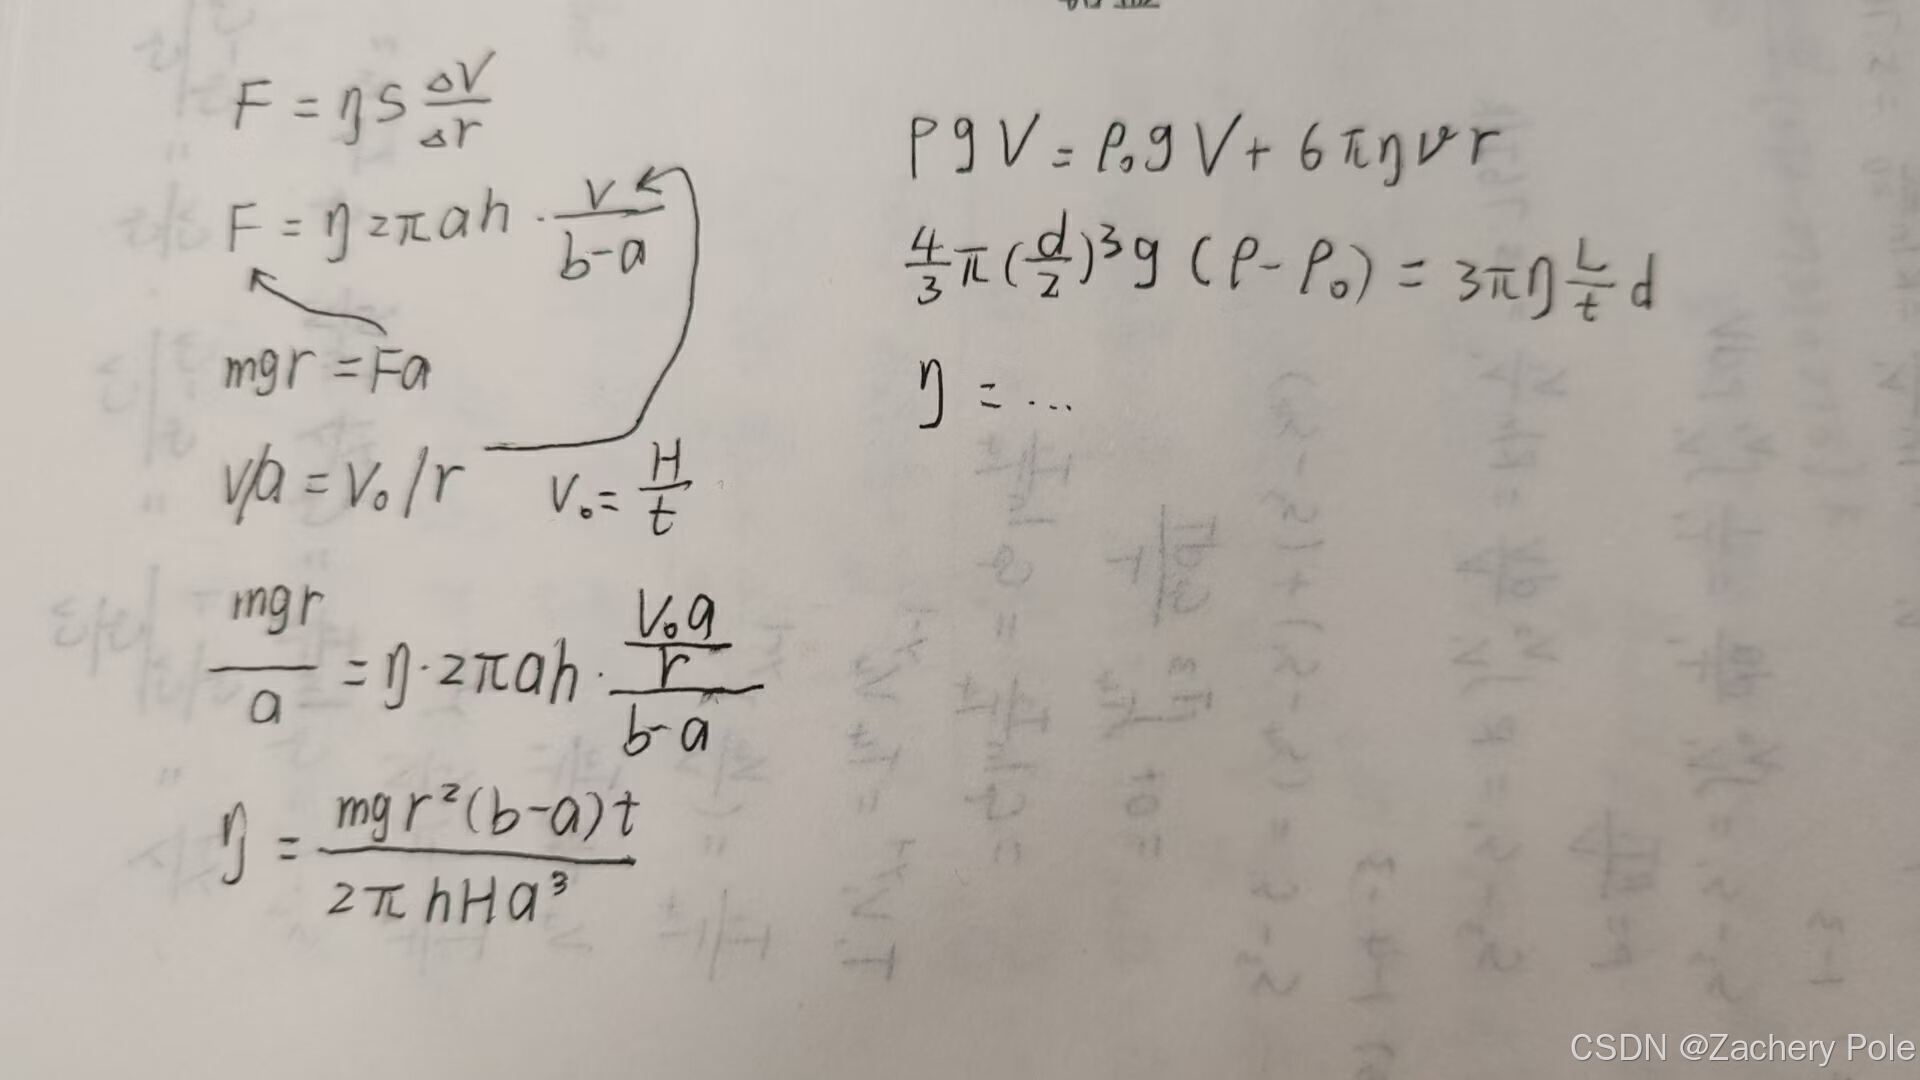 F = ηS ΔV/Δr
F = η2πah · v/(b-a)
mgr = Fa
v/a = V₀/r   V₀ = H/t
mgr/a = η·2πah · (V₀a/r)/(b-a)
η = mgr²(b-a)t / 2πhHa³
ρgV = ρ₀gV + 6πηvr
4/3 π(d/2)³g (ρ-ρ₀) = 3πη L/t d
η = ...
CSDN @Zachery Pole